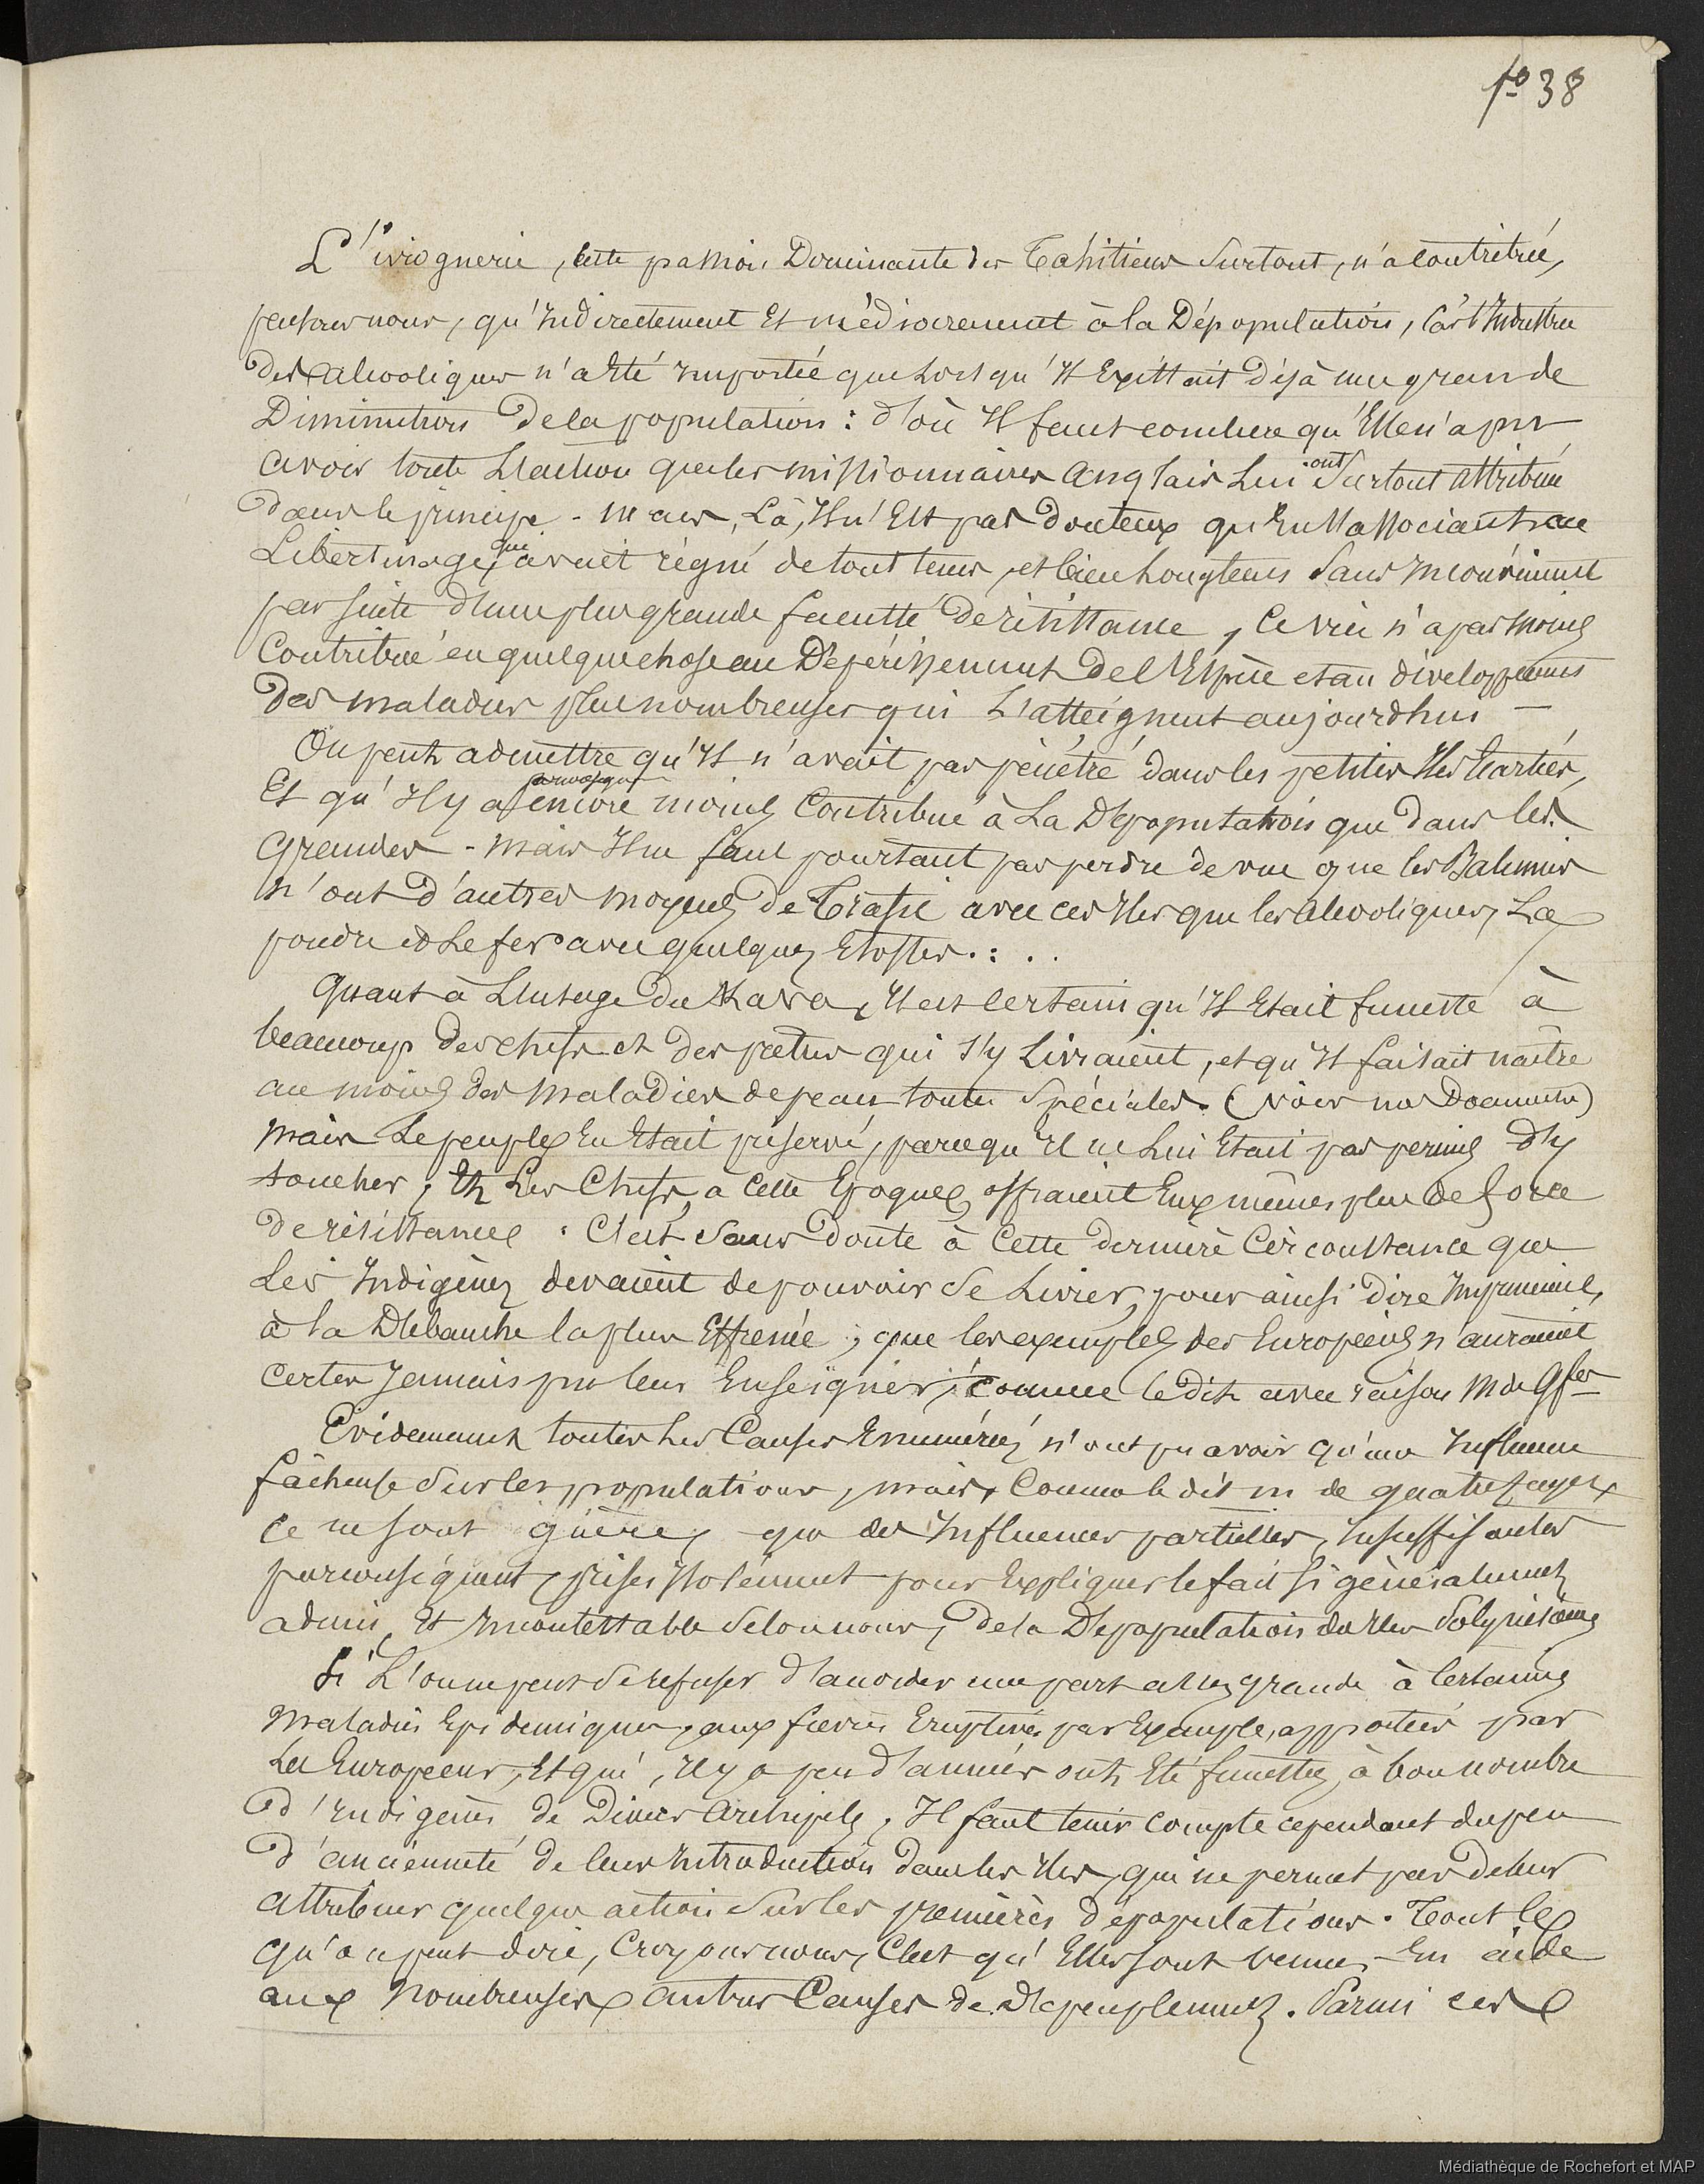 fo 38
L'ivrognerie, cette passion Dominante des Tahitiens surtout, n'a contribué,
pensons nous, qu'Indirectement Et médiocrement à la Dépopulation, Car l'Industrie
des alcooliques n'a Eté Importée que Lorsqu'Il Existait déjà une grande
Diminution De la population : d'où Il faut conclure qu'Elle n'a pu
avoir toute L'action que les missionnaires anglais Lui ont surtout attribuée
dans le principe - mais, Là, Il n'Est pas douteux qu'En s'associant au
Libertinage, qui avait régné de tout tems, et bien Longtems sans Inconvénient
par suite d'une plus grande faculté de résistance, Ce vice n'a pas moins
Contribué en quelque chose au Dépérissement De l'Espèce et au développement
Des maladies plus nombreuses qui L'atteignent aujourdhui —
On peut admettre qu'Il n'avait pas pénétré dans les petites Iles Ecartées,
Et qu'Il y a encore moins Contribué à La Dépopulation que dans les
Grandes - Mais Il ne faut pourtant pas perdre de vue que les Baleiniers
n'ont d'autres moyens de Trafic avec ces Iles que les alcooliques, La
poudre et Le fer avec quelques Etoffes . : . .
Quant à L'usage du Kava, Il est Certain qu'Il Etait funeste à
beaucoup des chefs et des prêtres qui s'y Livraient, et qu'Il faisait naître
au moins des Maladies de peau toutes Spéciales. (voir nos Documents)
Mais Le peuple En Etait préservé, parcequ'Il ne Lui Etait pas permis d'y
toucher, Et Les Chefs, à Cette Epoque, offraient Eux mêmes plus de force
de résistance : C'est Sans Doute à Cette dernière Circonstance que
Les Indigènes devaient de pouvoir se Livrer, pour ainsi dire Impunément,
à la Débauche la plus Effrénée ; que les exemples des Européens n'auraient
Certes Jamais pu leur Enseigner, comme le dit avec raison M de Qfes
Evidemment toutes Les Causes Enumérées n'ont pu avoir qu'une Influence
fâcheuse sur les populations, mais, Comme le dit m de quatrefages
ce ne sont guère, que des Influences partielles, Insuffisantes
par conséquent, prises Isolément pour Expliquer le fait si généralement
admis, Et Incontestable selon nous, de la Dépopulation des Iles Polynésiennes
Si L'on ne peut se refuser d'accorder une part assez grande à Certaines
Maladies Epidemiques, aux fièvres Eruptives par Exemple, apportées par
Les Européens, Et qui, Il y a peu d'années ont Eté funestes, à bon nombre
d'Indigènes de Divers Archipels, Il faut tenir Compte cependant du peu
d'ancienneté de leur Introduction dans les Iles, qui ne permet pas de leur
attribuer quelque action sur les premières dépopulations. Tout ce
qu'on peut dire, Croyons nous, C'est qu'Elles sont venues En aide
aux Nombreuses autres Causes de Dépeuplement. Parmi ces
Médiathèque de Rochefort et MAP